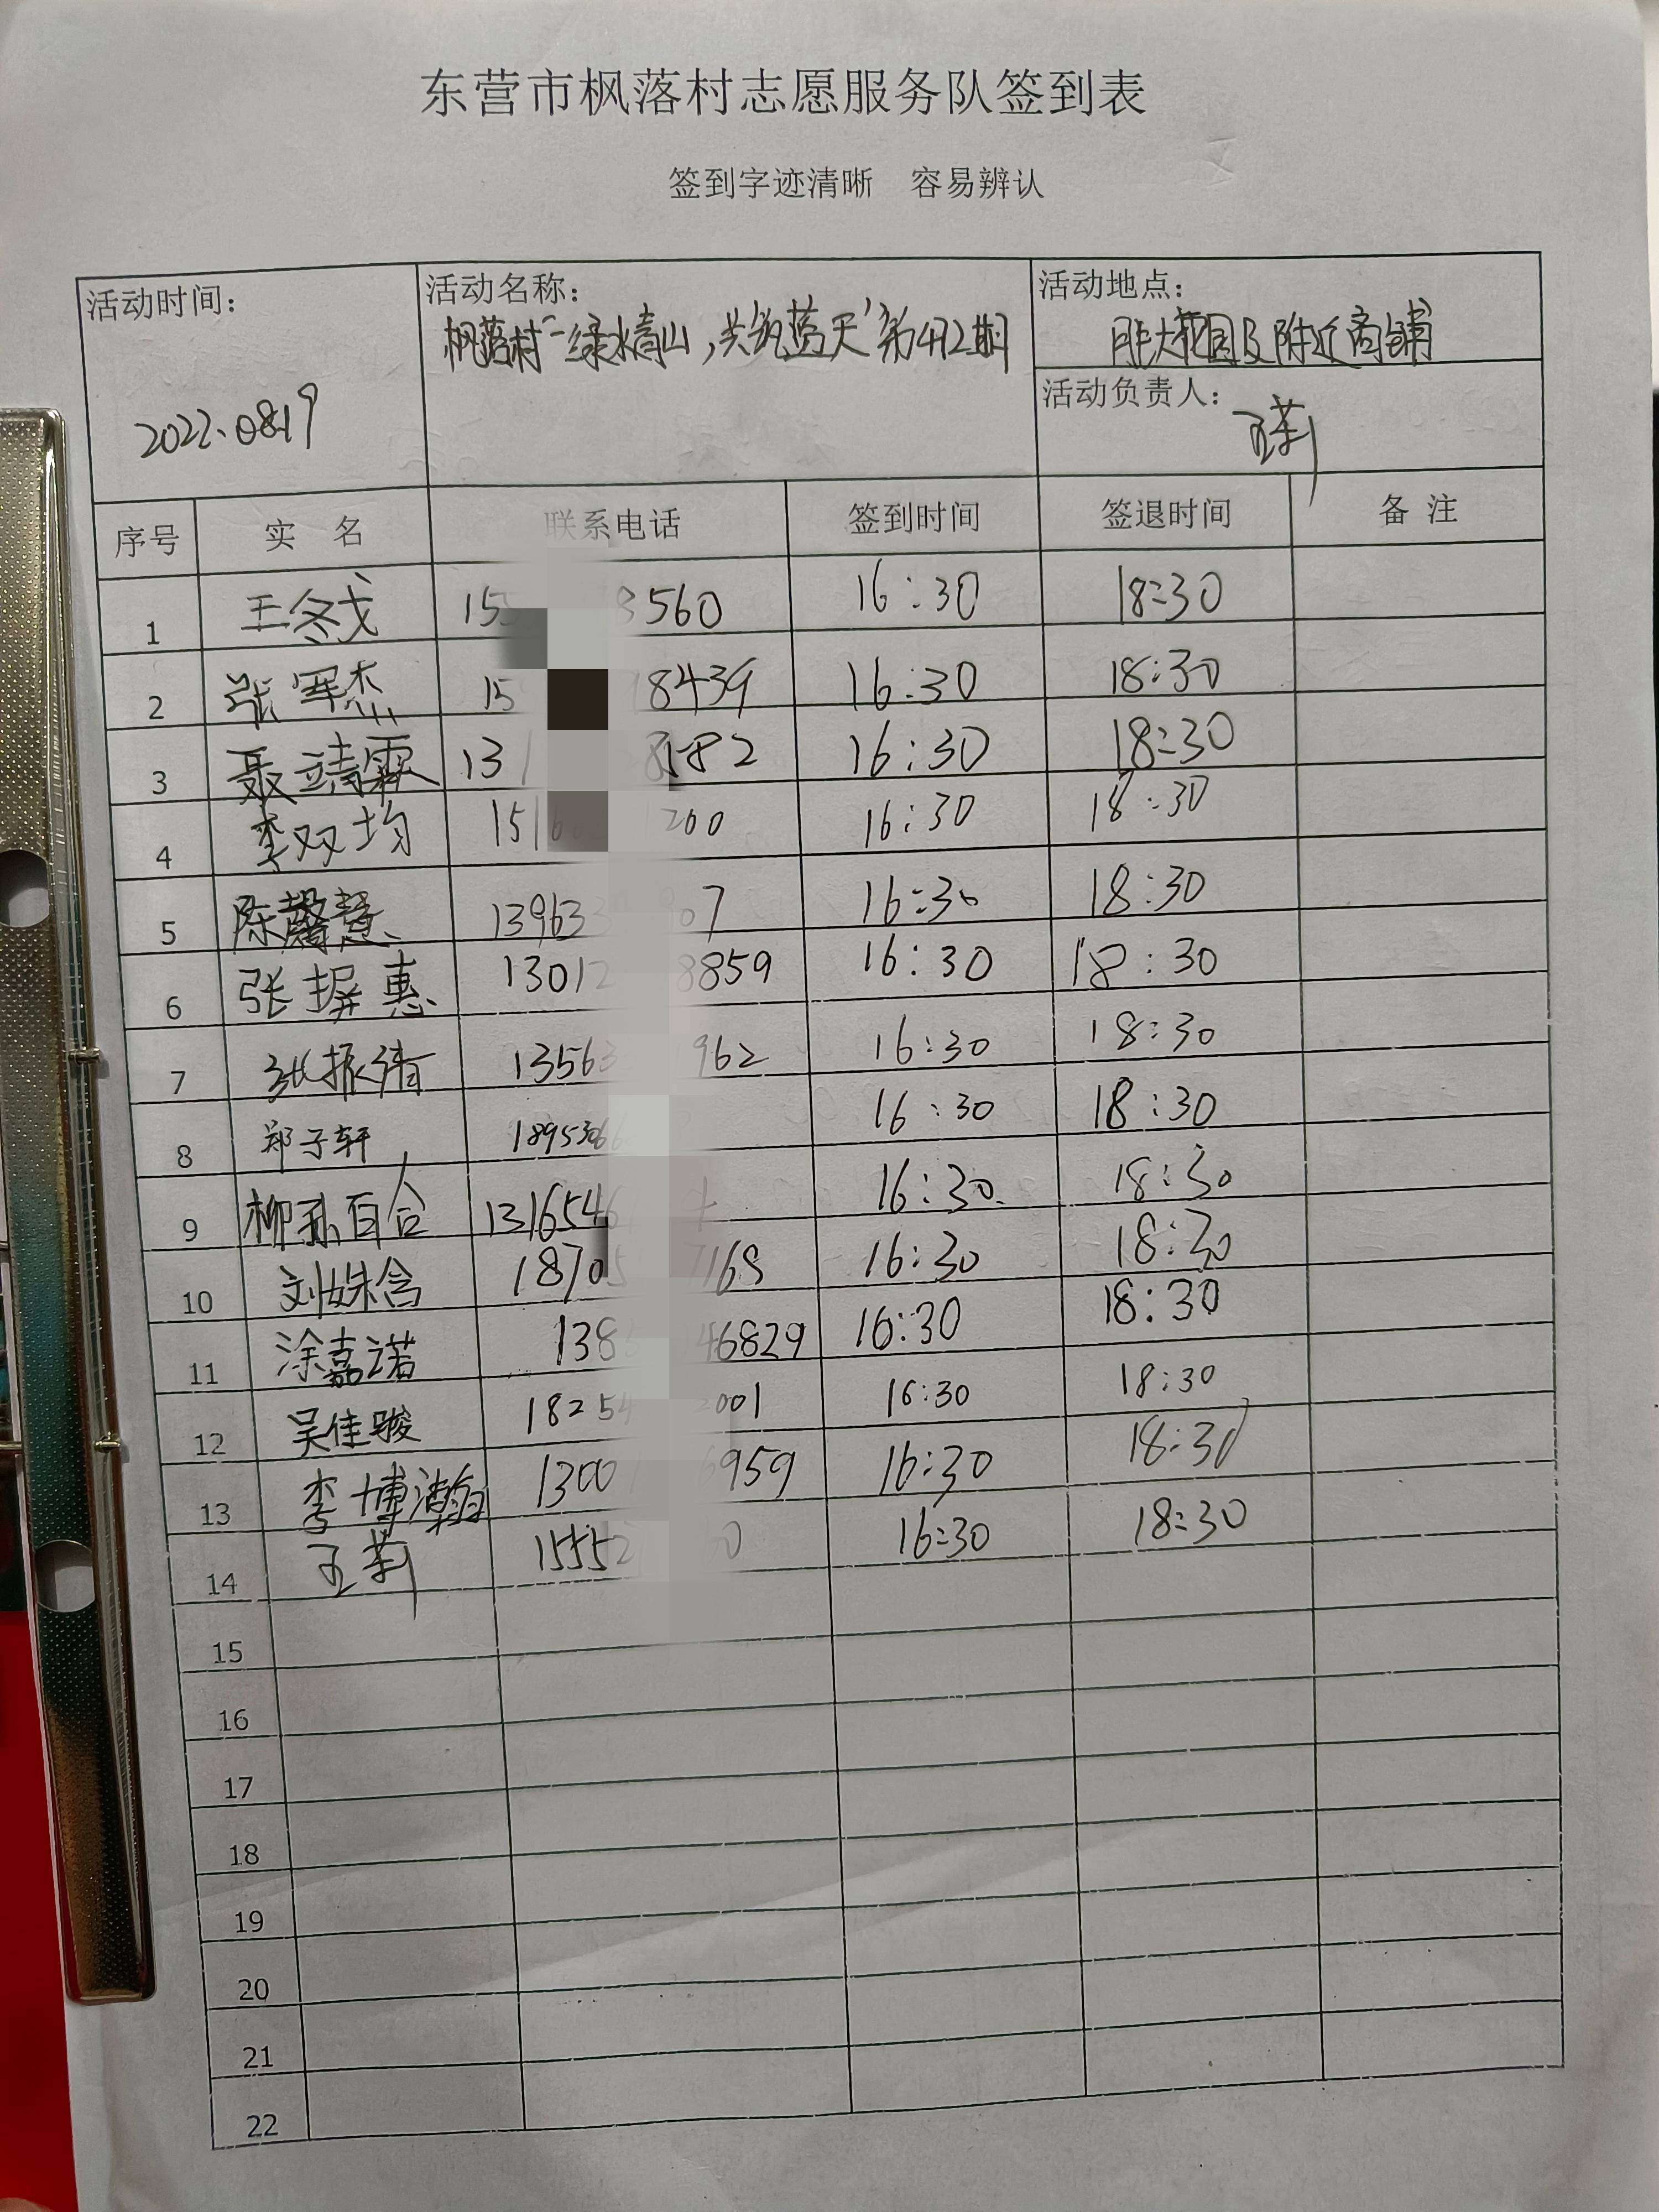 东营市枫落村志愿服务队签到表
签到字迹清晰 容易辨认
活动时间: 活动名称: 活动地点:
枫落村"绿水青山,共筑蓝天"第412期 大花园及附近商铺
2022.0819 活动负责人: 王莉
序号 实名 联系电话 签到时间 签退时间 备注
1 王冬戈 15 3560 16:30 18:30
2 张军杰 15 18439 16:30 18:30
3 聂靖霖 131 8582 16:30 18:30
4 李双均 1516 200 16:30 18:30
5 陈馨慧 13963 07 16:30 18:30
6 张摒惠 13012 8859 16:30 18:30
7 张振清 13563 962 16:30 18:30
8 郑子轩 1895366 16:30 18:30
9 柳孙百合 1316546 16:30 18:30
10 刘姝含 18705 7168 16:30 18:30
11 涂嘉诺 138 46829 16:30 18:30
12 吴佳骏 18254 2001 16:30 18:30
13 李博瀚 1300 6959 16:30 18:30
14 王莉 15552 0 16:30 18:30
15
16
17
18
19
20
21
22